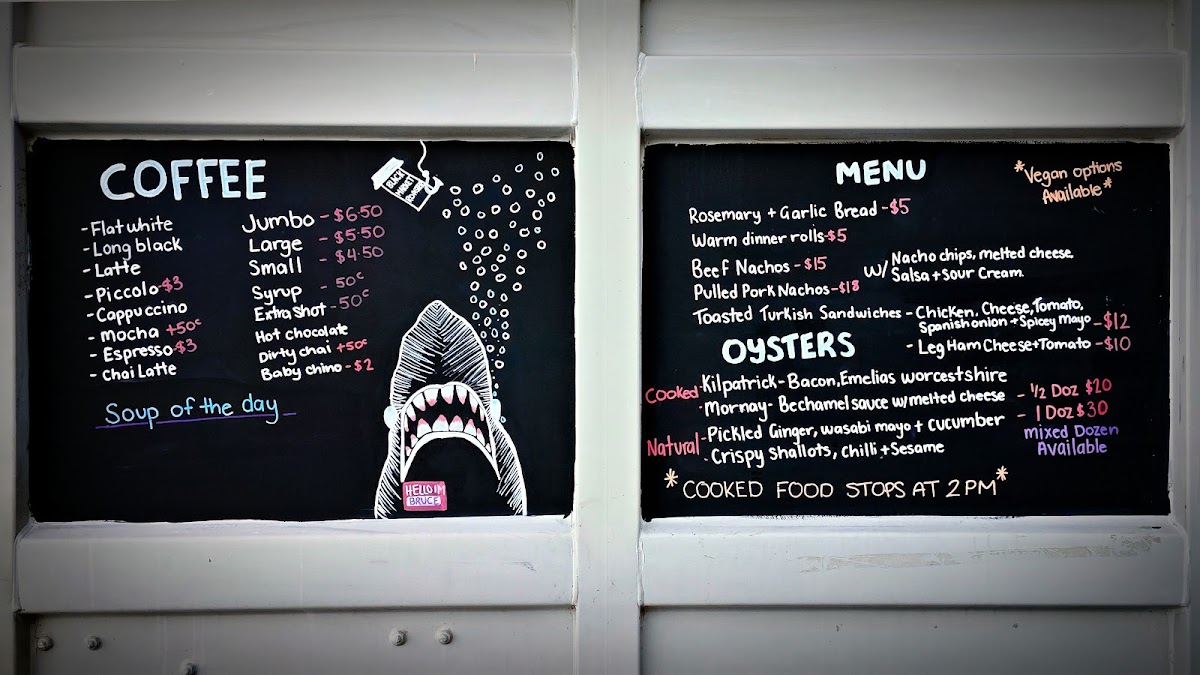 COFFEE
- Flat white
- Long black
- Latte
- Piccolo -$3
- Cappuccino
- mocha +50c
- Espresso -$3
- Chai Latte
Jumbo - $6.50
Large - $5.50
Small - $4.50
Syrup - 50c
Extra Shot - 50c
Hot chocolate
Dirty chai +50c
Baby chino - $2
Soup of the day
BLACK
MARKET
HELLO I'M
BRUCE
MENU
*Vegan options
Available*
Rosemary + Garlic Bread - $5
Warm dinner rolls - $5
Beef Nachos - $15
Pulled Pork Nachos - $18
W/ Nacho chips, melted cheese
Salsa + Sour Cream
Toasted Turkish Sandwiches - Chicken, Cheese, Tomato,
Spanish onion + Spicey Mayo - $12
- Leg Ham Cheese + Tomato - $10
OYSTERS
Cooked - Kilpatrick - Bacon, Emelias worcestshire
- Mornay - Bechamel sauce w/ melted cheese
Natural - Pickled Ginger, wasabi mayo + cucumber
- Crispy Shallots, chilli + Sesame
- 1/2 Doz $20
- 1 Doz $30
mixed Dozen
Available
*COOKED FOOD STOPS AT 2PM*